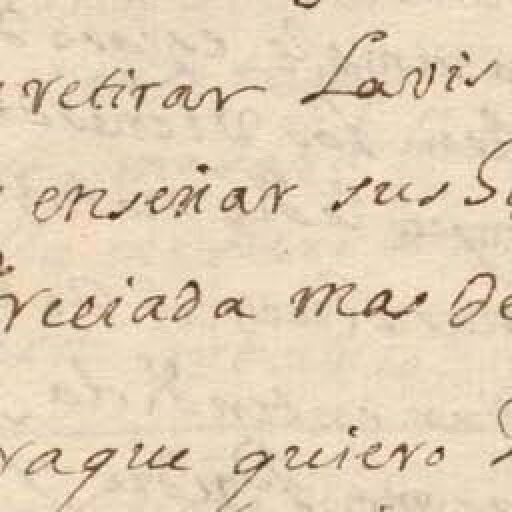 retirar Lavis
enseñar sus
reciada mas de
raque quiero